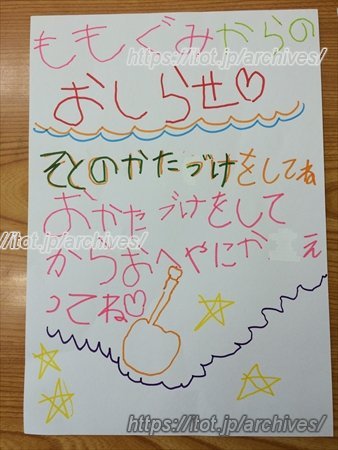 ももぐみからの
https://itot.jp/archives/
おしらせ♡
そとのかたづけをしてね
おかたづけをして
//itot.jp/archives/
からおへやにかえ
ってね♡
https://itot.jp/archives/